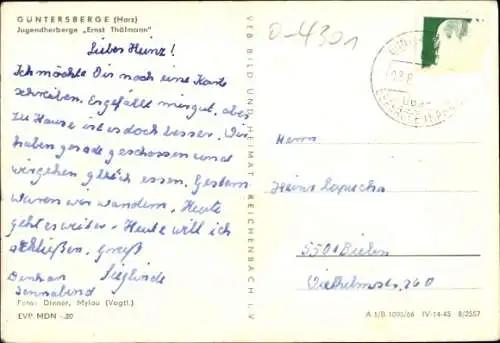 GÜNTERSBERGE (Harz)
Jugendherberge „Ernst Thälmann"
Lieber Heinz!
Ich möchte Dir noch eine Karte
schreiben. Es gefällt mir gut, aber
zu Hause ist es doch besser. Wir
haben gerade geschossen und
wir gehen gleich essen. Gestern
waren wir wandern. Heute
geht es weiter. Heute will ich
schließen. Gruß
Sieglinde
Sonnabend
Foto: Dinner, Mylau (Vogtl.)
EVP MDN -.20
VEB BILD UND HEIMAT REICHENBACH i. V.
0-4301
Herrn
Heinz
5501 Bielen
Wilhelmstr. 260
A 1/B 1095/66 IV-14-45 8/2557